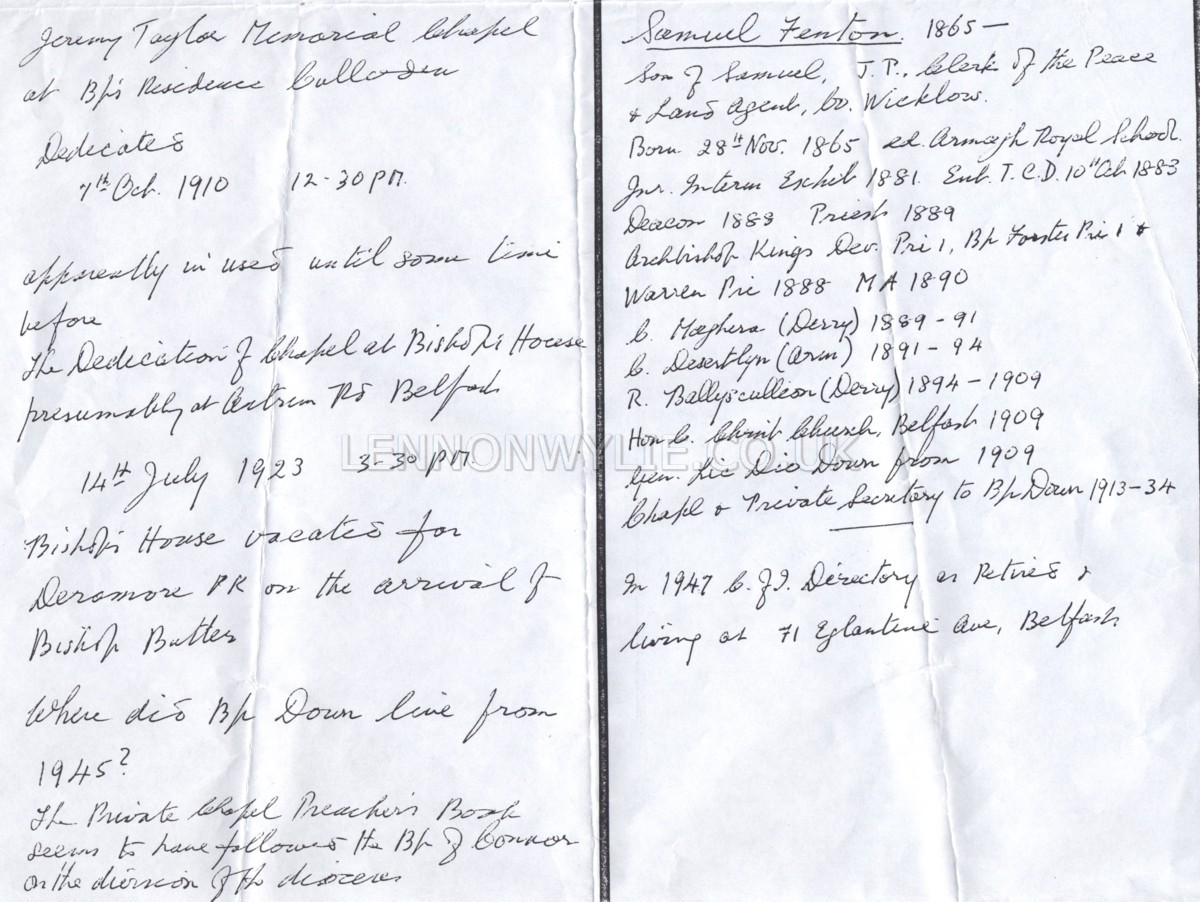 Jeremy Taylor Memorial Chapel
at Bp's Residence Culloden
Dedicated
7th Oct. 1910 12-30 PM.
apparently in used until some time
before
the Dedication of Chapel at Bishop's House
presumably at Antrim Rd Belfast
14th July 1923 3-30 PM
Bishop's House vacated for
Deramore PK on the arrival of
Bishop Butler
Where did Bp Down live from
1945?
The Private Chapel Preacher's Book
seems to have followed the Bp of Connor
on the division of the dioceses
Samuel Fenton. 1865 –
Son of Samuel, J.P., Clerk of the Peace
& Land Agent, Co. Wicklow.
Born 28th Nov. 1865 ed. Armagh Royal School.
Jnr. Interm Exhib 1881. Ent. T.C.D. 10th Oct 1883
Deacon 1888 Priest 1889
Archbishop Kings Dev. Pri 1, Bp Forster Pri 1 &
Warren Pri 1888 MA 1890
C. Maghera (Derry) 1889-91
C. Desertlyn (Arm) 1891-94
R. Ballyscullion (Derry) 1894-1909
Hon C. Christ Church, Belfast 1909
Gen. Lic Dio Down from 1909
Chapl & Private Secretary to Bp Down 1913-34
In 1947 C. of I. Directory as Retired &
living at 71 Eglantine Ave, Belfast
LENNONWYLIE.CO.UK